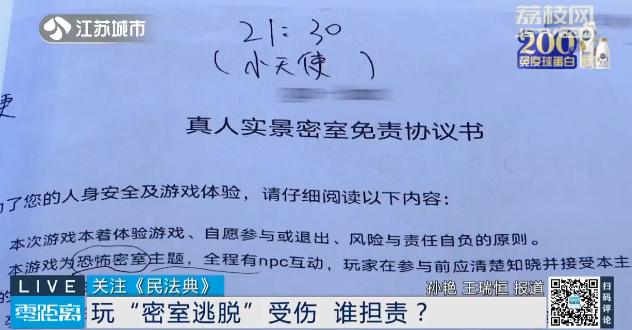 江苏城市
荔枝网
200
免疫球蛋白
21:30
(小天使)
真人实景密室免责协议书
了您的人身安全及游戏体验，请仔细阅读以下内容：
本次游戏本着体验游戏、自愿参与或退出、风险与责任自负的原则。
本游戏为恐怖密室主题，全程有npc互动，玩家在参与前应清楚知晓并接受本主
的
LIVE 关注《民法典》
孙艳 王瑞恒 报道
零距离
玩“密室逃脱”受伤 谁担责？
扫码评论